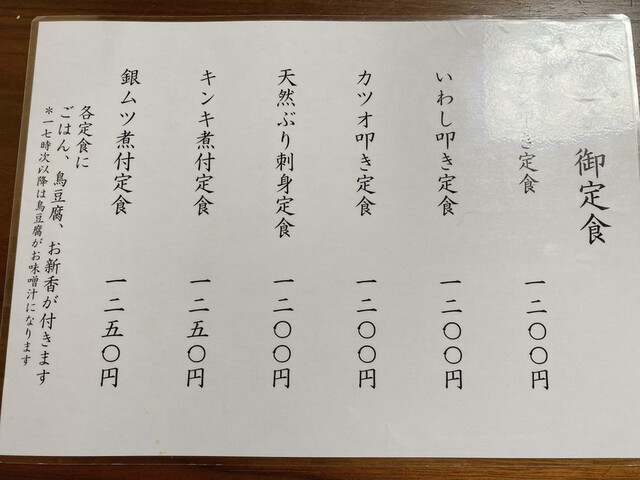 御定食
き定食 一二〇〇円
いわし叩き定食 一二〇〇円
カツオ叩き定食 一二〇〇円
天然ぶり刺身定食 一二〇〇円
キンキ煮付定食 一二五〇円
銀ムツ煮付定食 一二五〇円
各定食に
ごはん、鳥豆腐、お新香が付きます
＊一七時次以降は鳥豆腐がお味噌汁になります